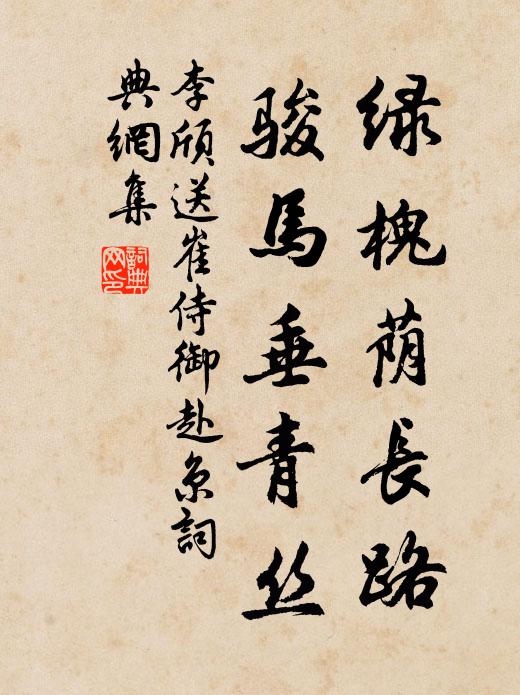 绿槐荫長路
骏馬垂青丝
李颀送崔侍御赴京詞
典網集
詞典
网印